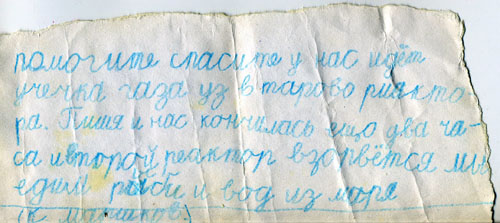 помогите спасите у нас идёт
учечка газа уз в тарово риакто-
ра. Пишя и нас кончилась ещо два ча-
са и второй реактор взорвётся мы
едим рыби и вод из моря